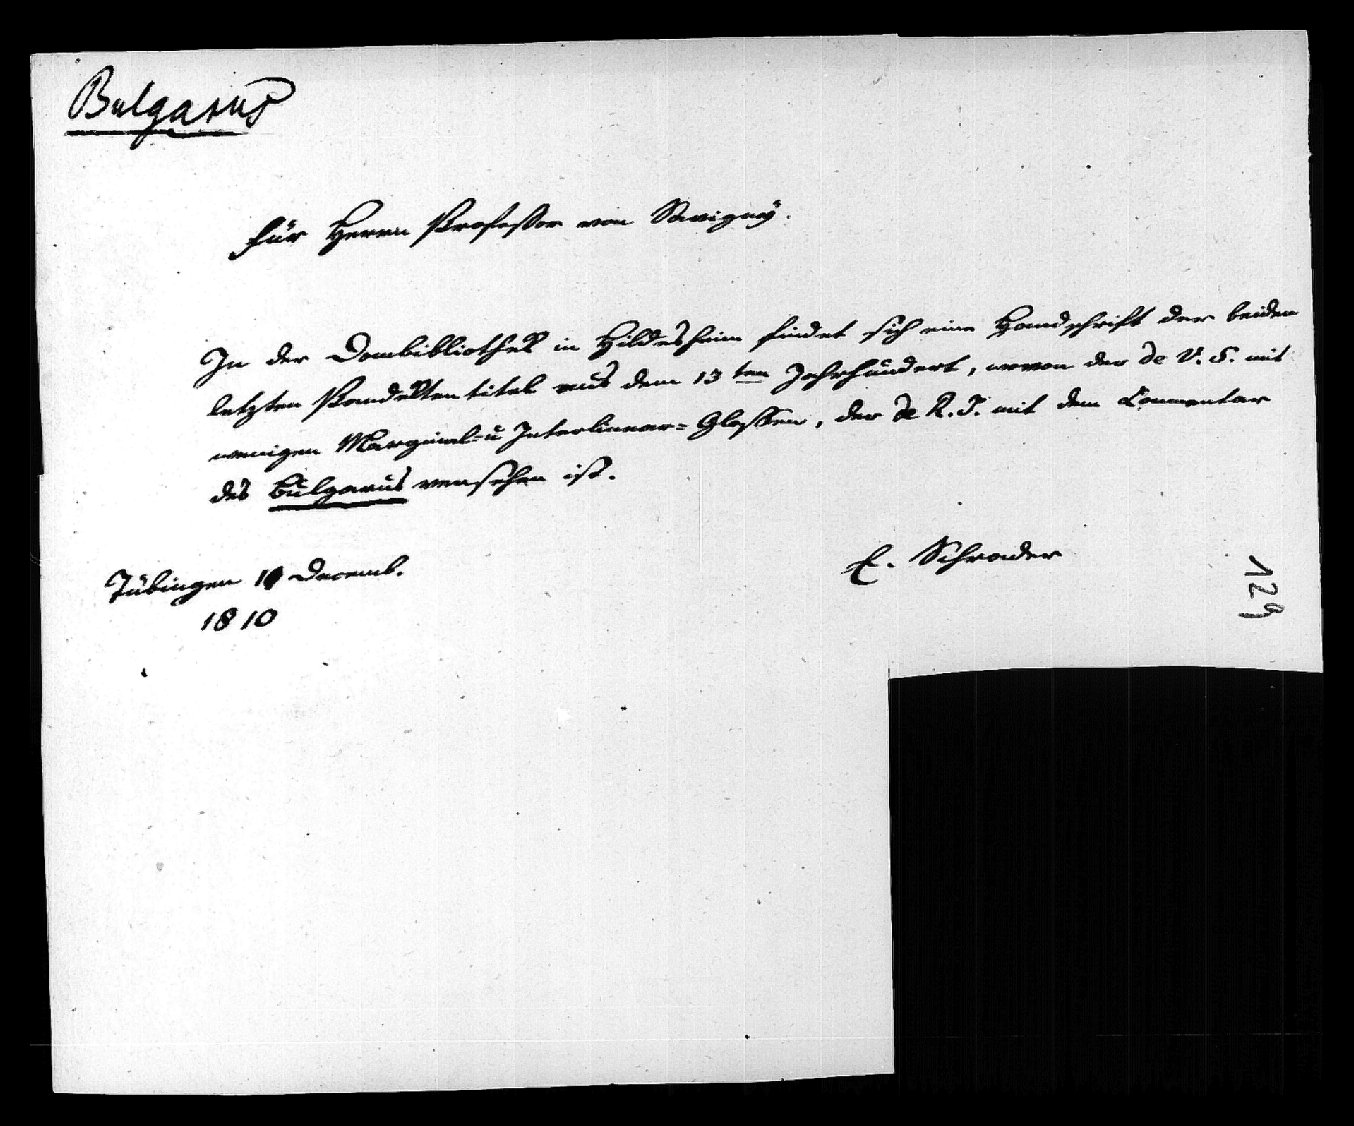 Bulgarus
Für Herrn Professor von Savigny.
In der Dombibliothek in Hildesheim findet sich eine Handschrift der beiden
letzten Pandektentitel aus dem 13ten Jahrhundert, wovon der de V. S. mit
wenigen Marginal- u Interlinear-Glossen, der de R. J. mit dem Commentar
des Bulgarus versehen ist.
E. Schrader
Tübingen Decemb.
1810
129